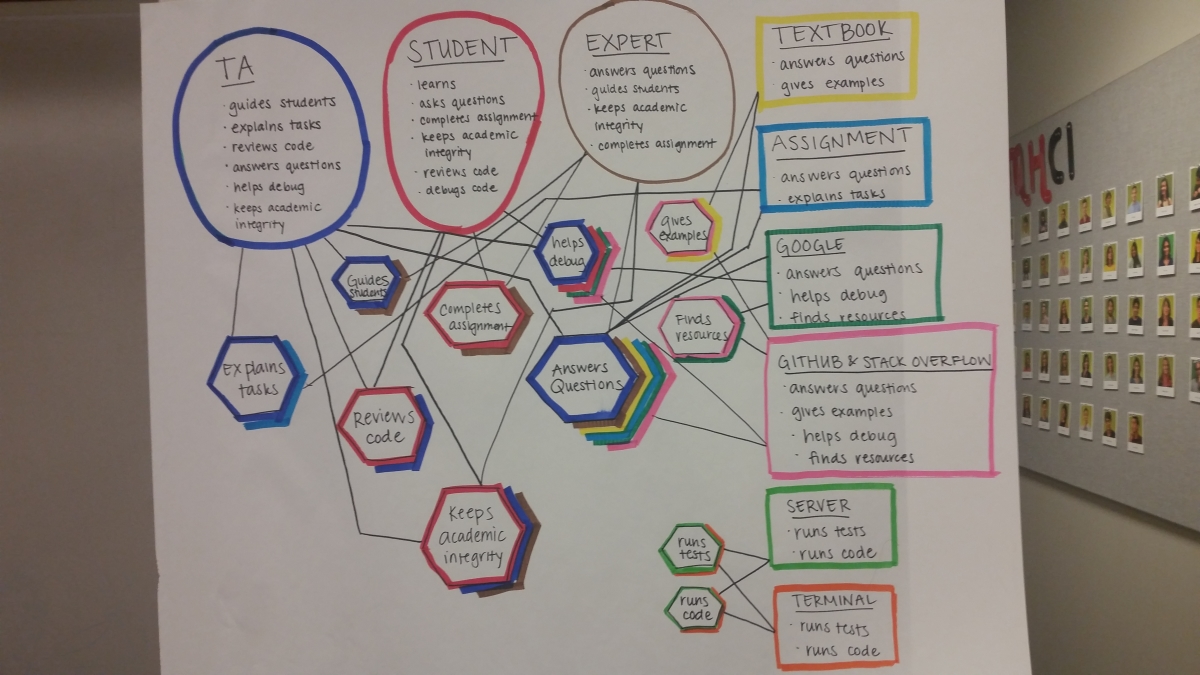 TA
· guides students
· explains tasks
· reviews code
· answers questions
· helps debug
· keeps academic
integrity
STUDENT
· learns
· asks questions
· completes assignment
· keeps academic
integrity
· reviews code
· debugs code
EXPERT
· answers questions
· guides students
· keeps academic
integrity
· completes assignment
TEXTBOOK
· answers questions
· gives examples
ASSIGNMENT
· answers questions
· explains tasks
GOOGLE
· answers questions
· helps debug
· finds resources
GITHUB & STACK OVERFLOW
· answers questions
· gives examples
· helps debug
· finds resources
SERVER
· runs tests
· runs code
TERMINAL
· runs tests
· runs code
Guides
students
helps
debug
gives
examples
Completes
assignment
Finds
resources
Explains
tasks
Answers
Questions
Reviews
code
Keeps
academic
integrity
runs
tests
runs
code
HCI